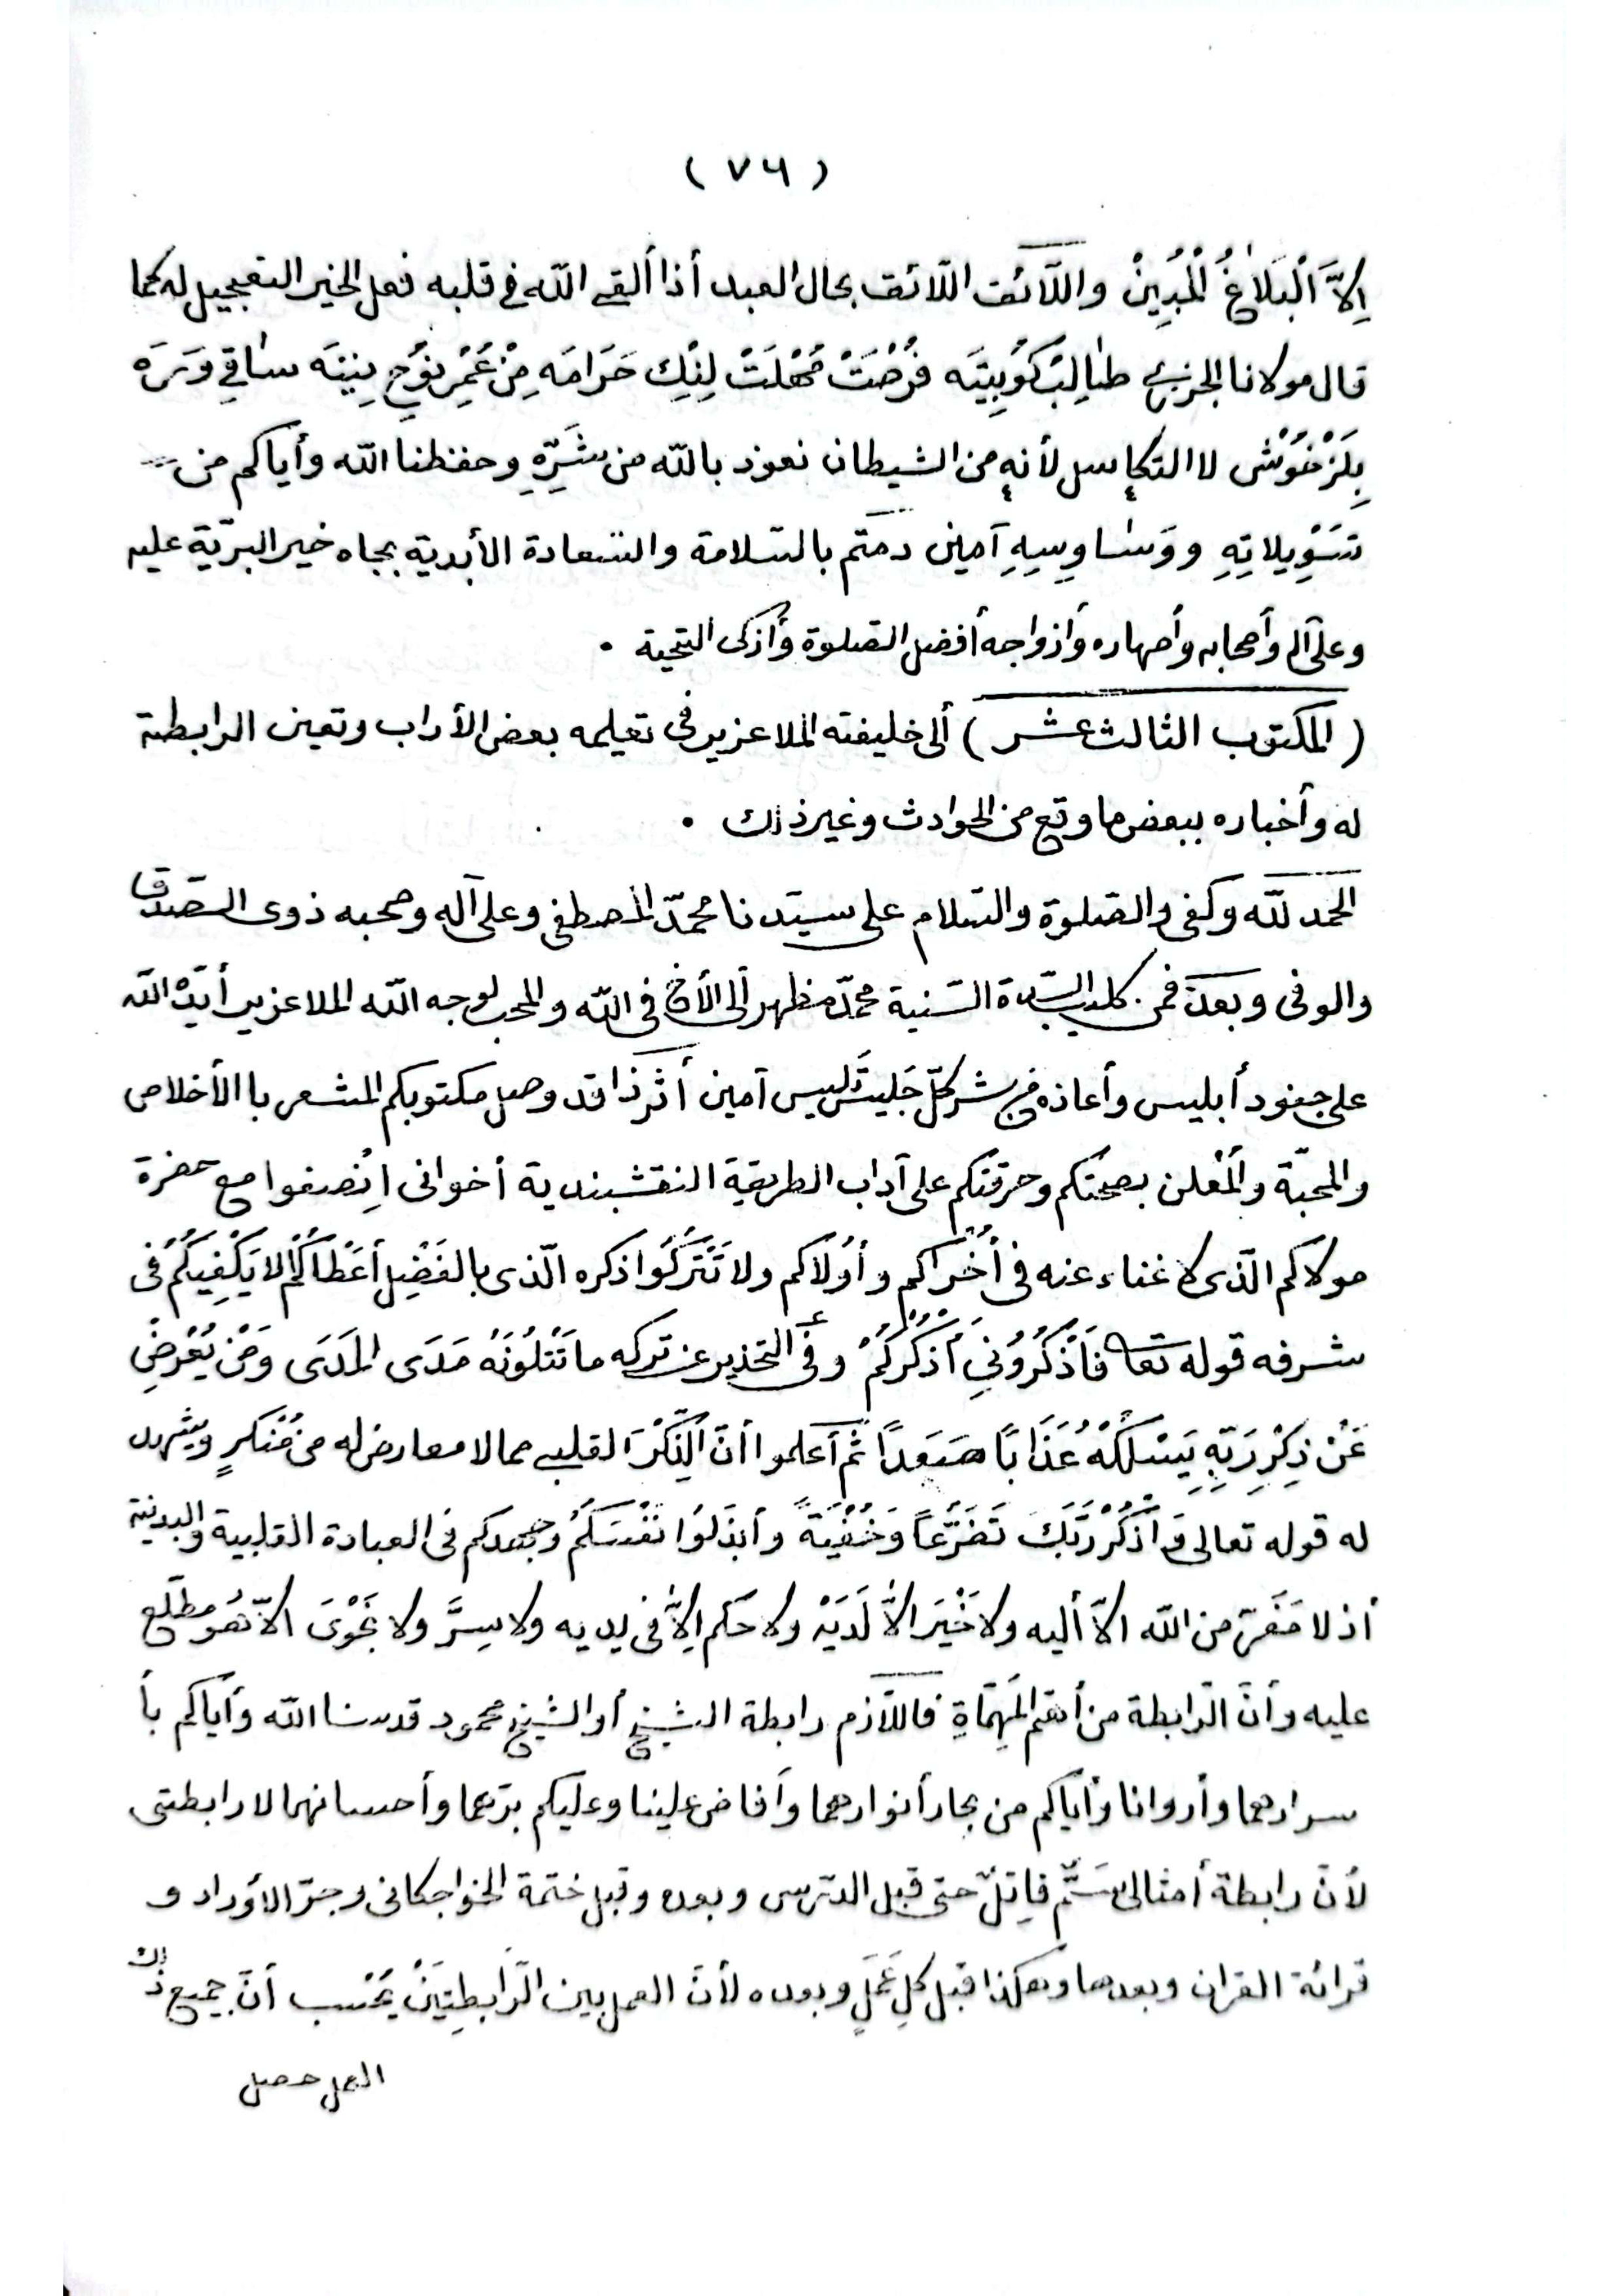 ( ٧٦ )
اِلاَّ الْبَلَاغُ الْمُبِينْ واللّائق اللّائق بحال العبد أذا ألقى الله فى قلبه فعل الخير التعجيل له كما
قال مولانا الجزرى طَالِبْ كُوبِيتَه فُرْصَتْ مُهْلَتْ لِنِك حَرَامَه مِنْ عُمْرِ نُوحِ نِينَه سَاقِي وَرَه
بِلَزْخُوشْ لا التكاسل لأنه من الشيطان نعوذ بالله من شَرِّهِ وحفظنا الله وأياكم من
تَسْوِيلاتِهِ ووَسَاوِسِهِ آمين دمتم بالسّلامة والسّعادة الأبدية بجاه خير البريّة عليه
وعلى آله وأصحابه وأصهاره وأزواجه أفضل الصّلوة وأزكى التحية ٠
( المكتوب الثالث عشر ) ألى خليفته الملا عزير فى تعليمه بعض الأداب وتعين الرابطة
له وأخباره ببعض ما وقع من الحوادث وغير ذلك ٠
الحمد لله وكفى والصّلوة والسّلام على سيّدنا محمّد المصطفى وعلى آله وصحبه ذوى الصّدق
والوفى وبعد فمن كلب السّدة السّنية محمّد مظهر ألى الأخ فى الله والمحب لوجه الله الملا عزير أيّده الله
على جنود أبليس وأعاذه من شر كلّ جَلِيسٍ لَبيس آمين أثر ذا قد وصل مكتوبكم المشعر باالأخلاص
والمحبّة والْمُعْلن بصحّتكم وحرقتكم على آداب الطريقة النقشبندية أخوانى اِنْصفوا مع حضرة
مولاكم الّذى لا غناء عنه فى أُخْرَاكم وأُولَاكم ولا تَتْرُكُوا ذكره الّذى بالفَضْلِ أَعْطَاكُمْ ألا يَكْفِيكُمْ فى
شرفه قوله تعا فَاذْكُرُونِي أَذْكُرْكُمْ وفى التحذير عن تركه ما تَتْلُونَهُ مَدَى الْمَدَى وَمَنْ يُعْرِضْ
عَنْ ذِكْرِ رَبِّهِ يَسْلُكْهُ عَذَابًا صَعَدًا ثُمّ أعلموا أنّ الذِّكْرَ القلبى مما لا معارض له من مُنْكرٍ ويشهد
له قوله تعالى وَاذْكُرْ رَبَّكَ تَضَرُّعًا وَخُفْيَةً وأبذلوا نَفْسَكُمْ وجهدكم فى العبادة القلبية والبدنية
أذ لا مَفَرّ من الله الاّ أليه ولا خَيْرَ الاَّ لَدَيْه ولا حكم الاّ فى يديه ولا سِرَّ ولا نَجْوَى الاّ هُو مطّلع
عليه وأنّ الرّابطة من أهمّ الْمُهِمَّاةِ فاللّازم رابطة الشيخ أو الشيخ محمود قدسنا الله وأياكم بأ
سرارهما وأروانا وأياكم من بحار أنوارهما وأفاض علينا وعليكم برّهما وأحسانهما لا رابطتى
لأنّ رابطة أمثالى سَمٌّ قاتِلٌ حتى قبل الدّرس وبعده وقبل ختمة الخواجكانى وجرّ الأوراد و
قرائة القران وبعدها وهكذا قبل كلِ عَمَلٍ وبعده لأنّ العمل بين الرّابطِتَيْنْ يُحْسب أنّ جميع ذلك
العمل حصل